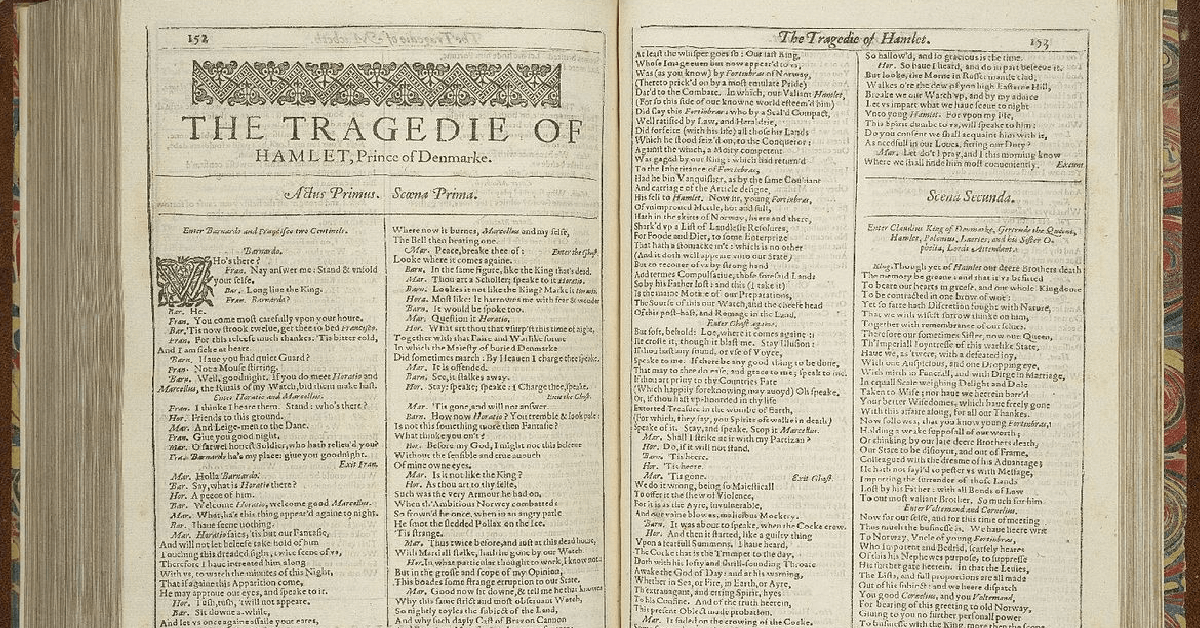 152
THE TRAGEDIE OF
HAMLET, Prince of Denmarke.
Actus Primus. Scœna Prima.
Enter Barnardo and Francisco two Centinels.
Barnardo.
WHo's there?
Fran. Nay answer me: Stand & vnfold
your selfe.
Bar. Long liue the King.
Fran. Barnardo?
Bar. He.
Fran. You come most carefully vpon your houre.
Bar. 'Tis now strook twelue, get thee to bed Francisco.
Fran. For this releefe much thankes: 'Tis bitter cold,
And I am sicke at heart.
Barn. Haue you had quiet Guard?
Fran. Not a Mouse stirring.
Barn. Well, goodnight. If you do meet Horatio and
Marcellus, the Riuals of my Watch, bid them make hast.
Enter Horatio and Marcellus.
Fran. I thinke I heare them. Stand: who's there?
Hor. Friends to this ground.
Mar. And Leige-men to the Dane.
Fran. Giue you good night.
Mar. O farwel honest Soldier, who hath relieu'd you?
Fra. Barnardo ha's my place: giue you goodnight.
Exit Fran.
Mar. Holla Barnardo.
Bar. Say, what is Horatio there?
Hor. A peece of him.
Bar. Welcome Horatio, welcome good Marcellus.
Mar. What, ha's this thing appear'd againe to night.
Bar. I haue seene nothing.
Mar. Horatio saies, 'tis but our Fantasie,
And will not let beleefe take hold of him
Touching this dreaded sight, twice seene of vs,
Therefore I haue intreated him along
With vs, to watch the minutes of this Night,
That if againe this Apparition come,
He may approue our eyes, and speake to it.
Hor. Tush, tush, 'twill not appeare.
Bar. Sit downe a-while,
And let vs once againe assaile your eares,
Where now it burnes, Marcellus and my selfe,
The Bell then beating one.
Mar. Peace, breake thee of: Enter the Ghost.
Looke where it comes againe.
Barn. In the same figure, like the King that's dead.
Mar. Thou art a Scholler; speake to it Horatio.
Barn. Lookes it not like the King? Marke it Horatio.
Hora. Most like: It harrowes me with fear & wonder
Barn. It would be spoke too.
Mar. Question it Horatio.
Hor. What art thou that vsurp'st this time of night,
Together with that Faire and Warlike forme
In which the Maiesty of buried Denmarke
Did sometimes march: By Heauen I charge thee speake.
Mar. It is offended.
Barn. See, it stalkes away.
Hor. Stay: speake; speake: I Charge thee, speake.
Exit the Ghost.
Mar. 'Tis gone, and will not answer.
Barn. How now Horatio? You tremble & look pale:
Is not this something more then Fantasie?
What thinke you on't?
Hor. Before my God, I might not this beleeue
Without the sensible and true auouch
Of mine owne eyes.
Mar. Is it not like the King?
Hor. As thou art to thy selfe,
Such was the very Armour he had on,
When th'Ambitious Norwey combatted:
So frown'd he once, when in an angry parle
He smot the sledded Pollax on the Ice.
'Tis strange.
Mar. Thus twice before, and iust at this dead houre,
With Martiall stalke, hath he gone by our Watch.
Hor. In what particular thought to work, I know not:
But in the grosse and scope of my Opinion,
This boades some strange erruption to our State.
Mar. Good now sit downe, & tell me he that knowes
Why this same strict and most obseruant Watch,
So nightly toyles the subiect of the Land,
And why such dayly Cast of Brazon Cannon
The Tragedie of Hamlet.
153
At least the whisper goes so: Our last King,
Whose Image euen but now appear'd to vs,
Was (as you know) by Fortinbras of Norway,
(Thereto prick'd on by a most emulate Pride)
Dar'd to the Combate. In which, our Valiant Hamlet,
(For so this side of our knowne world esteem'd him)
Did slay this Fortinbras: who by a Seal'd Compact,
Well ratified by Law, and Heraldrie,
Did forfeite (with his life) all those his Lands
Which he stood seiz'd on, to the Conqueror:
Against the which, a Moity competent
Was gaged by our King: which had return'd
To the Inheritance of Fortinbras,
Had he bin Vanquisher, as by the same Cou'nant
And carriage of the Article designe,
His fell to Hamlet. Now sir, young Fortinbras,
Of vnimproued Mettle, hot and full,
Hath in the skirts of Norway, heere and there,
Shark'd vp a List of Landlesse Resolutes,
For Foode and Diet, to some Enterprize
That hath a stomacke in't: which is no other
(And it doth well appeare vnto our State)
But to recouer of vs by strong hand
And termes Compulsatiue, those foresaid Lands
So by his Father lost: and this (I take it)
Is the maine Motiue of our Preparations,
The Sourse of this our Watch, and the cheefe head
Of this post-hast, and Romage in the Land.
Enter Ghost againe.
But soft, behold: Loe, where it comes againe:
Ile crosse it, though it blast me. Stay Illusion:
If thou hast any sound, or vse of Voyce,
Speake to me. If there be any good thing to be done,
That may to thee do ease, and grace to me; speak to me.
If thou art priuy to thy Countries Fate
(Which happily foreknowing may auoyd) Oh speake.
Or, if thou hast vp-hoorded in thy life
Extorted Treasure in the wombe of Earth,
(For which, they say, you Spirits oft walke in death)
Speake of it. Stay, and speake. Stop it Marcellus.
Mar. Shall I strike at it with my Partizan?
Hor. Do, if it will not stand.
Barn. 'Tis heere.
Hor. 'Tis heere.
Mar. 'Tis gone. Exit Ghost.
We do it wrong, being so Maiesticall
To offer it the shew of Violence,
For it is as the Ayre, invulnerable,
And our vaine blowes, malicious Mockery.
Barn. It was about to speake, when the Cocke crew.
Hor. And then it started, like a guilty thing
Vpon a fearfull Summons. I haue heard,
The Cocke that is the Trumpet to the day,
Doth with his lofty and shrill-sounding Throate
Awake the God of Day: and at his warning,
Whether in Sea, or Fire, in Earth, or Ayre,
Th'extrauagant, and erring Spirit, hyes
To his Confine. And of the truth heerein,
This present Obiect made probation.
Mar. It faded on the crowing of the Cocke.
So hallow'd, and so gracious is the time.
Hor. So haue I heard, and do in part beleeue it.
But looke, the Morne in Russet mantle clad,
Walkes o're the dew of yon high Easterne Hill,
Breake we our Watch vp, and by my aduice
Let vs impart what we haue seene to night
Vnto yong Hamlet. For vpon my life,
This Spirit dumbe to vs, will speake to him:
Do you consent we shall acquaint him with it,
As needfull in our Loues, fitting our Duty?
Mar. Let do't I pray, and I this morning know
Where we shall finde him most conueniently. Exeunt
Scena Secunda.
Enter Claudius King of Denmarke, Gertrude the Queene,
Hamlet, Polonius, Laertes, and his Sister O-
phelia, Lords Attendants.
King. Though yet of Hamlet our deere Brothers death
The memory be greene: and that it vs befitted
To beare our hearts in greefe, and our whole Kingdome
To be contracted in one brow of woe:
Yet so farre hath Discretion fought with Nature,
That we with wisest sorrow thinke on him,
Together with remembrance of our selues.
Therefore our sometimes Sister, now our Queen,
Th'Imperiall Ioyntresse of this warlike State,
Haue we, as 'twere, with a defeated ioy,
With one Auspicious, and one Dropping eye,
With mirth in Funerall, and with Dirge in Marriage,
In equall Scale weighing Delight and Dole
Taken to Wife; nor haue we heerein barr'd
Your better Wisedomes, which haue freely gone
With this affaire along, for all our Thankes.
Now followes, that you know young Fortinbras,
Holding a weake supposall of our worth;
Or thinking by our late deere Brothers death,
Our State to be disioynt, and out of Frame,
Colleagued with the dreame of his Aduantage;
He hath not fayl'd to pester vs with Message,
Importing the surrender of those Lands
Lost by his Father: with all Bonds of Law
To our most valiant Brother. So much for him.
Enter Voltemand and Cornelius.
Now for our selfe, and for this time of meeting
Thus much the businesse is. We haue heere writ
To Norway, Vncle of young Fortinbras,
Who Impotent and Bedrid, scarsely heares
Of this his Nephewes purpose, to suppresse
His further gate heerein. In that the Leuies,
The Lists, and full proportions are all made
Out of his subiect: and we heere dispatch
You good Cornelius, and you Voltemand,
For bearing of this greeting to old Norway,
Giuing to you no further personall power
To businesse with the King, more then the scope